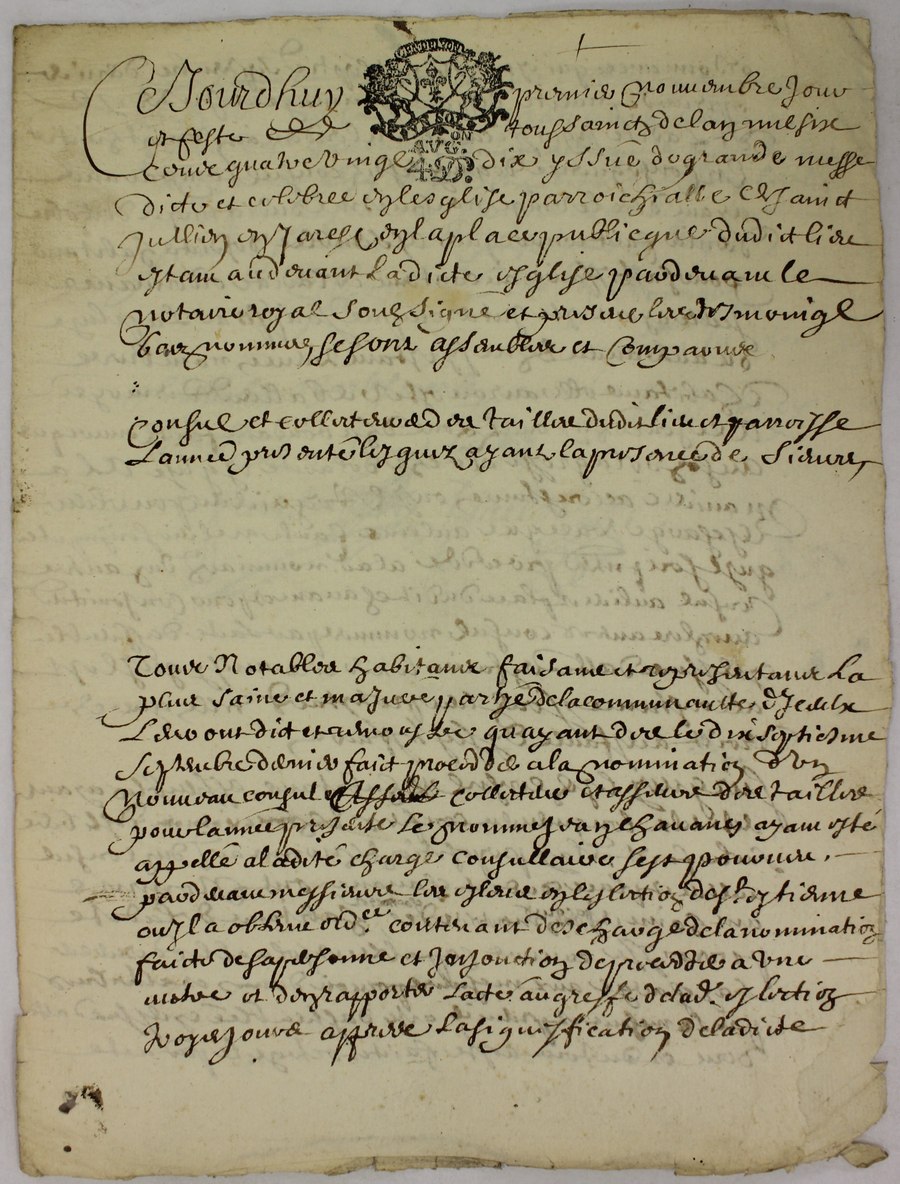 GEN DE LYON
Cejourdhuy premier novembre jour
et feste de toussainctz de lan mil six
cens quatre vingt dix yssue de grande messe
AVG. 49 D.
dicte et celebree en lesglise parroichialle de sainct
Jullien en Jarest en la place publicque dudict lieu
estant au devant ladicte esglise par devant le
notaire royal soubsigné et presens les tesmoingz
bas nommes, se sont assembles et comparus
Consulz et collecteurs des tailles dudit lieu et parroisse
lannee presente lesquelz ayant la presence de sieurs
Tous Notables habitans faisant et representant la
plus saine et majeure partye de la communaulté dicelle
Lesd. ont dict et remonstré quayant des le dix septiesme
septembre dernier faict proceder a la nomination dun
nouveau consul collecteur et asseeur des tailles
pour lannee presente Le nomme Jean Chavanes ayant esté
appellé a ladite charge consullaire sest pourvu
par devant messieurs les esleus en leslection de St estienne
ou il a obtenu ordce contenant descharge de la nomination
faicte de sa personne et Injonction de proceder a une
autre et den rapporter lacte au greffe de lad. eslection
trois jours appres la signiffication de ladicte